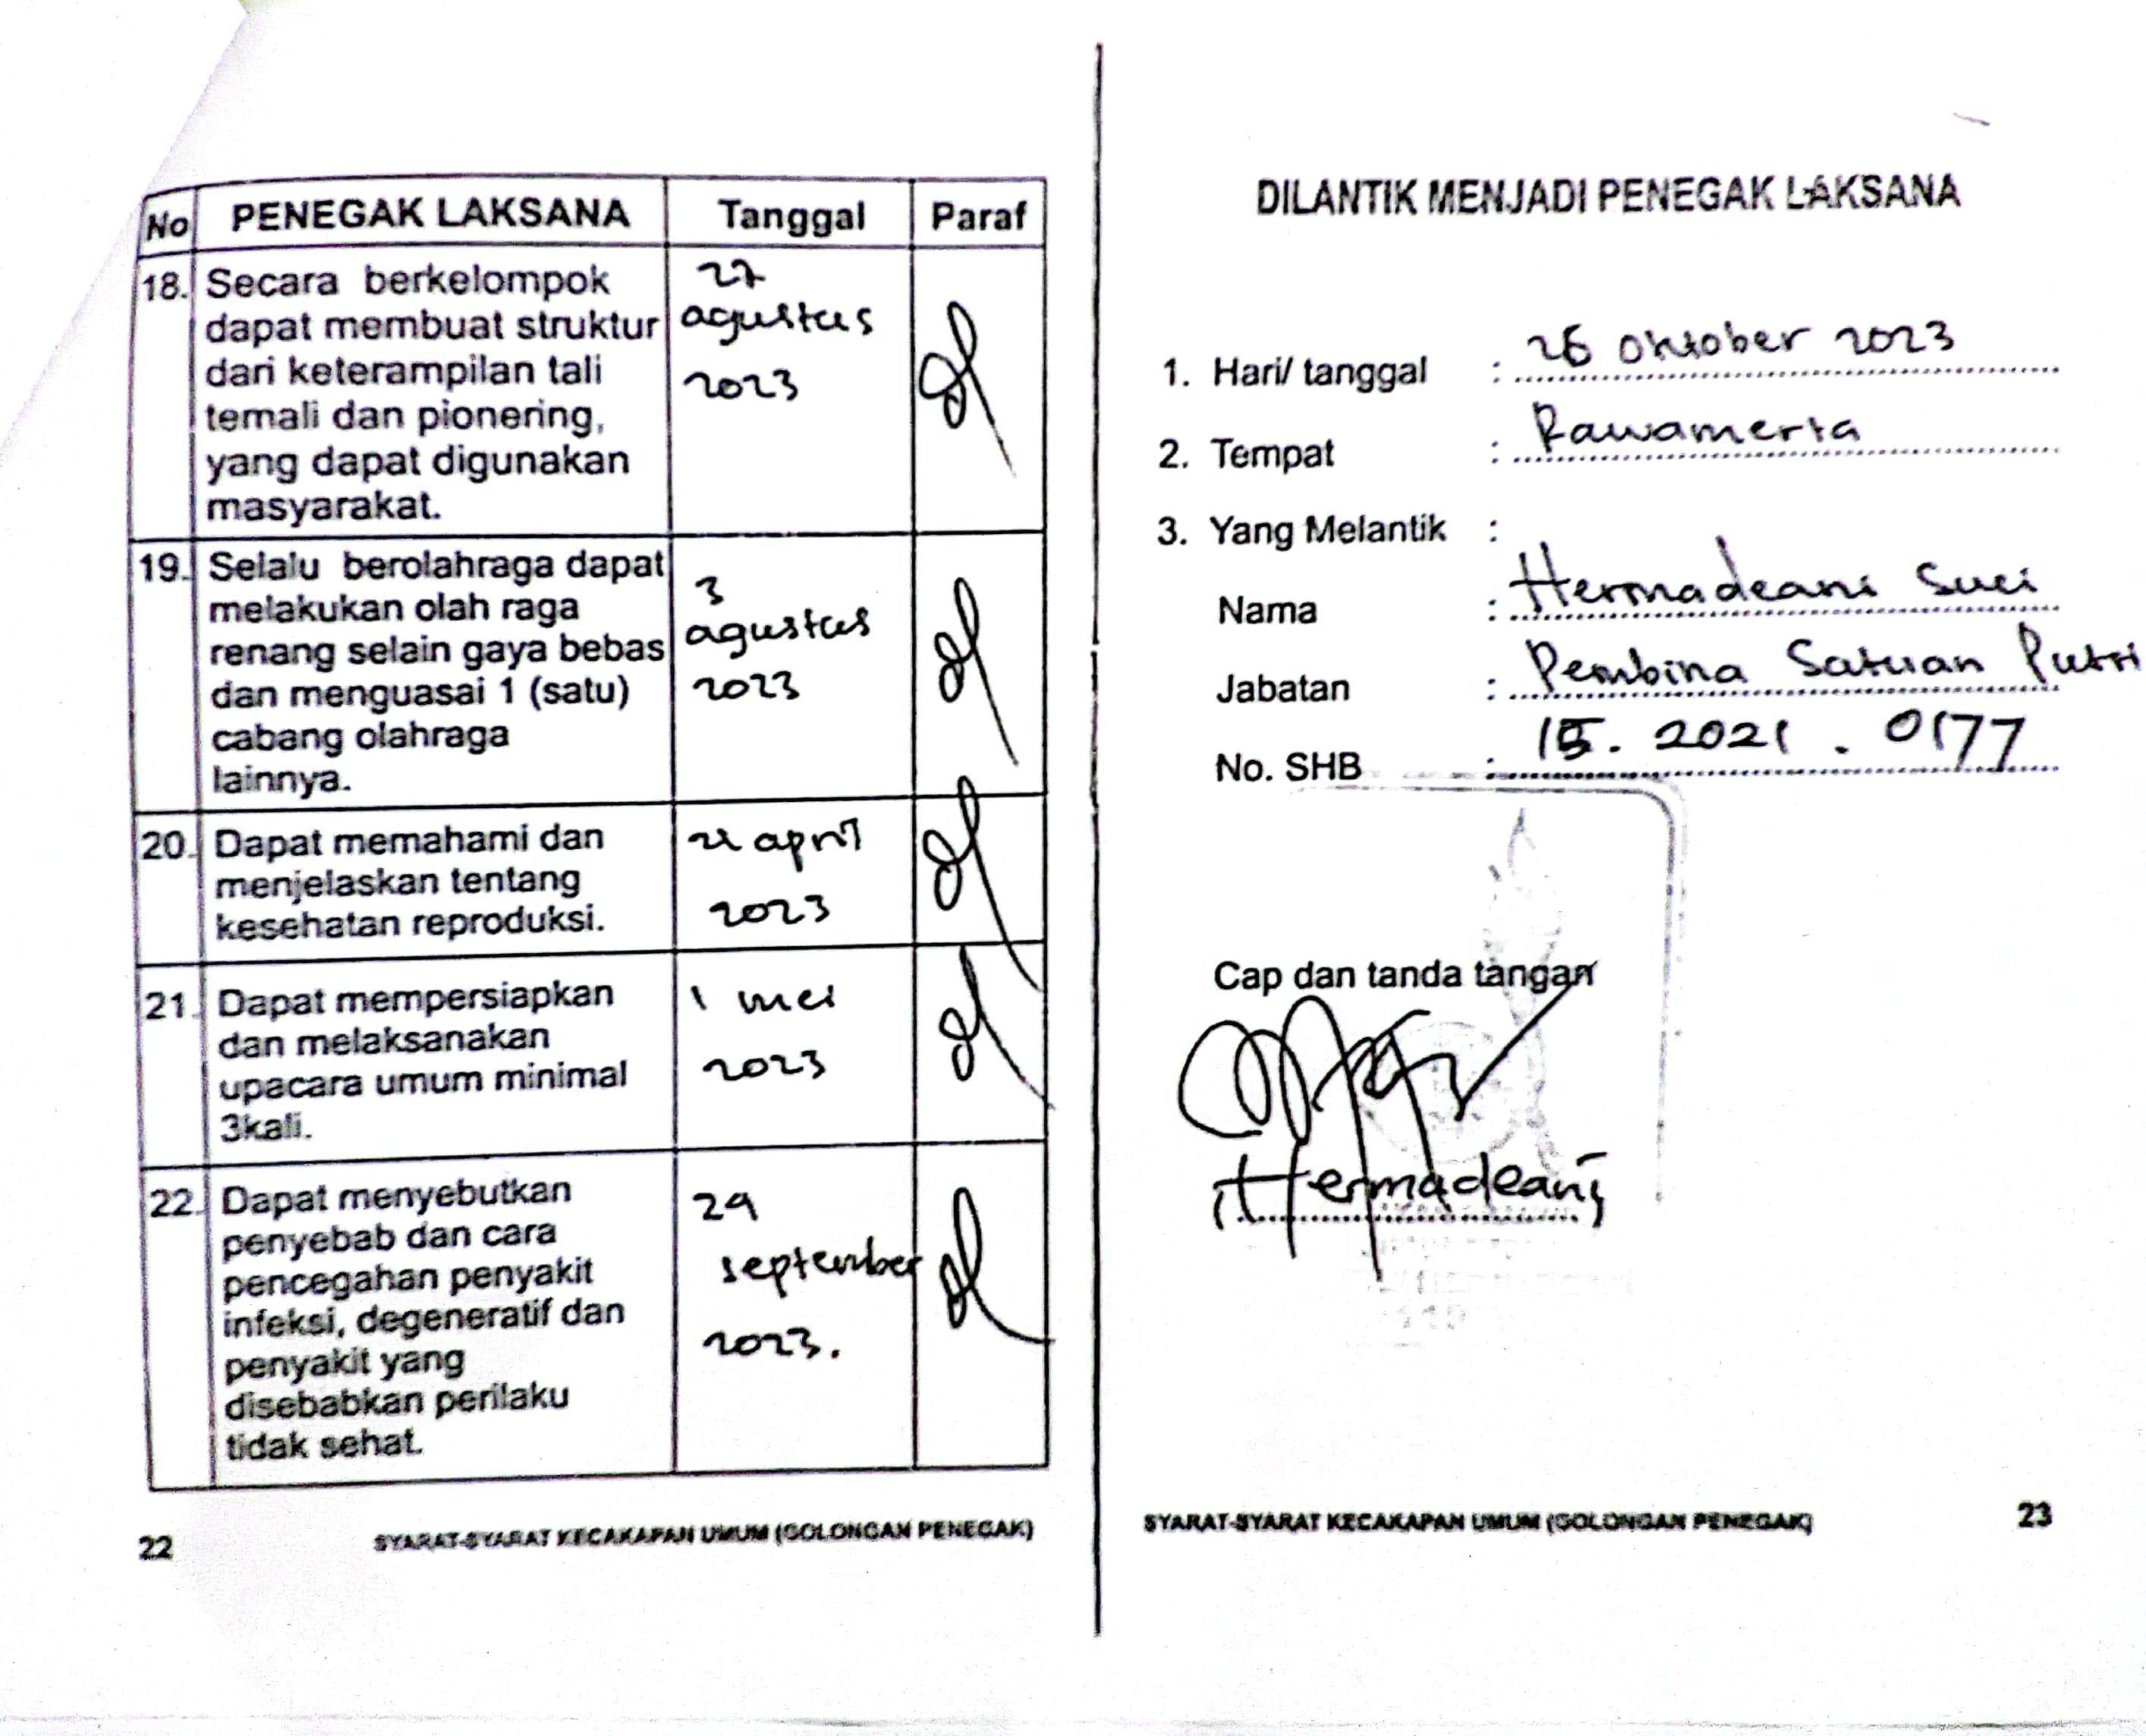 No PENEGAK LAKSANA Tanggal Paraf
18. Secara berkelompok
dapat membuat struktur
dari keterampilan tali
temali dan pionering,
yang dapat digunakan
masyarakat.
27
agustus
2023
19. Selalu berolahraga dapat
melakukan olah raga
renang selain gaya bebas
dan menguasai 1 (satu)
cabang olahraga
lainnya.
3
agustus
2023
20. Dapat memahami dan
menjelaskan tentang
kesehatan reproduksi.
april
2023
21. Dapat mempersiapkan
dan melaksanakan
upacara umum minimal
3kali.
1 mei
2023
22. Dapat menyebutkan
penyebab dan cara
pencegahan penyakit
infeksi, degeneratif dan
penyakit yang
disebabkan perilaku
tidak sehat.
29
september
2023.
22 SYARAT-SYARAT KECAKAPAN UMUM (GOLONGAN PENEGAK)
DILANTIK MENJADI PENEGAK LAKSANA
1. Hari/ tanggal : 26 Oktober 2023
2. Tempat : Rawamerta
3. Yang Melantik :
Nama : Hermadeani Suci
Jabatan : Pembina Satuan Putri
No. SHB : 15. 2021 . 0177
Cap dan tanda tangan
Hermadeani
SYARAT-SYARAT KECAKAPAN UMUM (GOLONGAN PENEGAK) 23